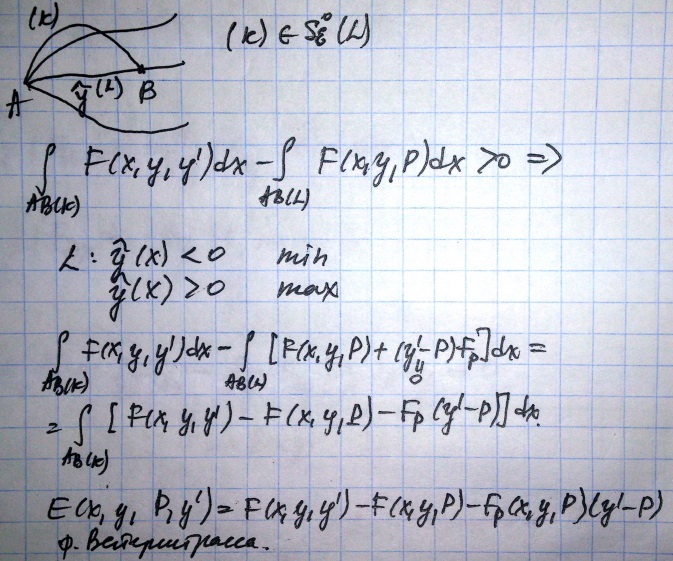 (K)
(K) ∈ S⁰ε(L)
A ŷ(L) B
∫AB(K) F(x, y, y')dx - ∫AB(L) F(x, y, P)dx > 0 =>
L: ŷ(x) < 0 min
ŷ(x) > 0 max
∫AB(K) F(x, y, y')dx - ∫AB(L) [F(x, y, P) + (y' - P)Fp]dx =
0
= ∫AB(K) [F(x, y, y') - F(x, y, P) - Fp(y' - P)]dx.
E(x, y, P, y') = F(x, y, y') - F(x, y, P) - Fp(x, y, P)(y' - P)
ф. Вейерштрасса.